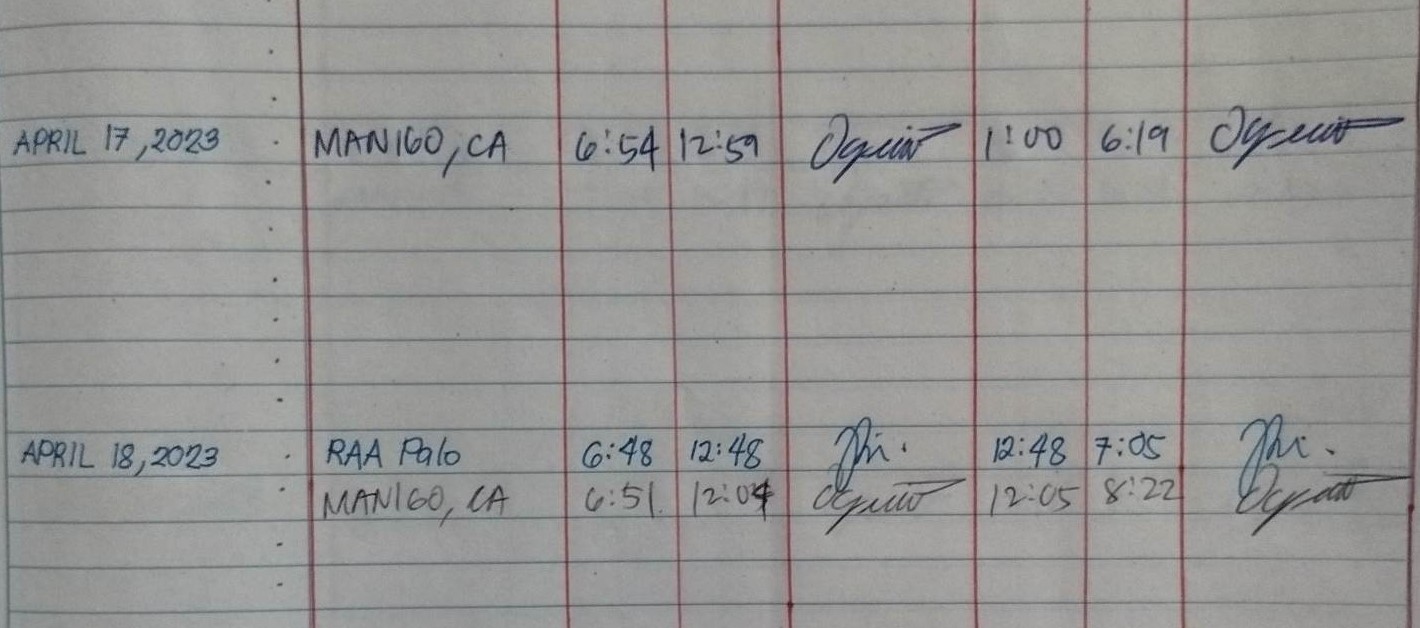 APRIL 17, 2023 MANIGO, CA 6:54 12:59 1:00 6:19
APRIL 18, 2023 RAA Palo 6:48 12:48 12:48 7:05
MANIGO, CA 6:51 12:04 12:05 8:22